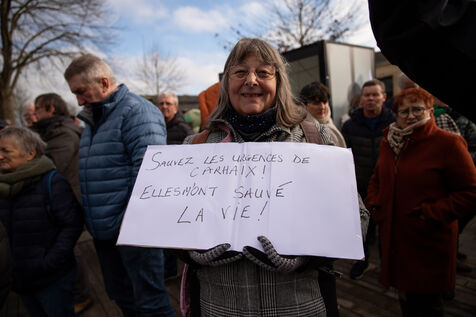 SAUVEZ LES URGENCES DE
CARHAIX!
ELLES M'ONT SAUVÉ
LA VIE!